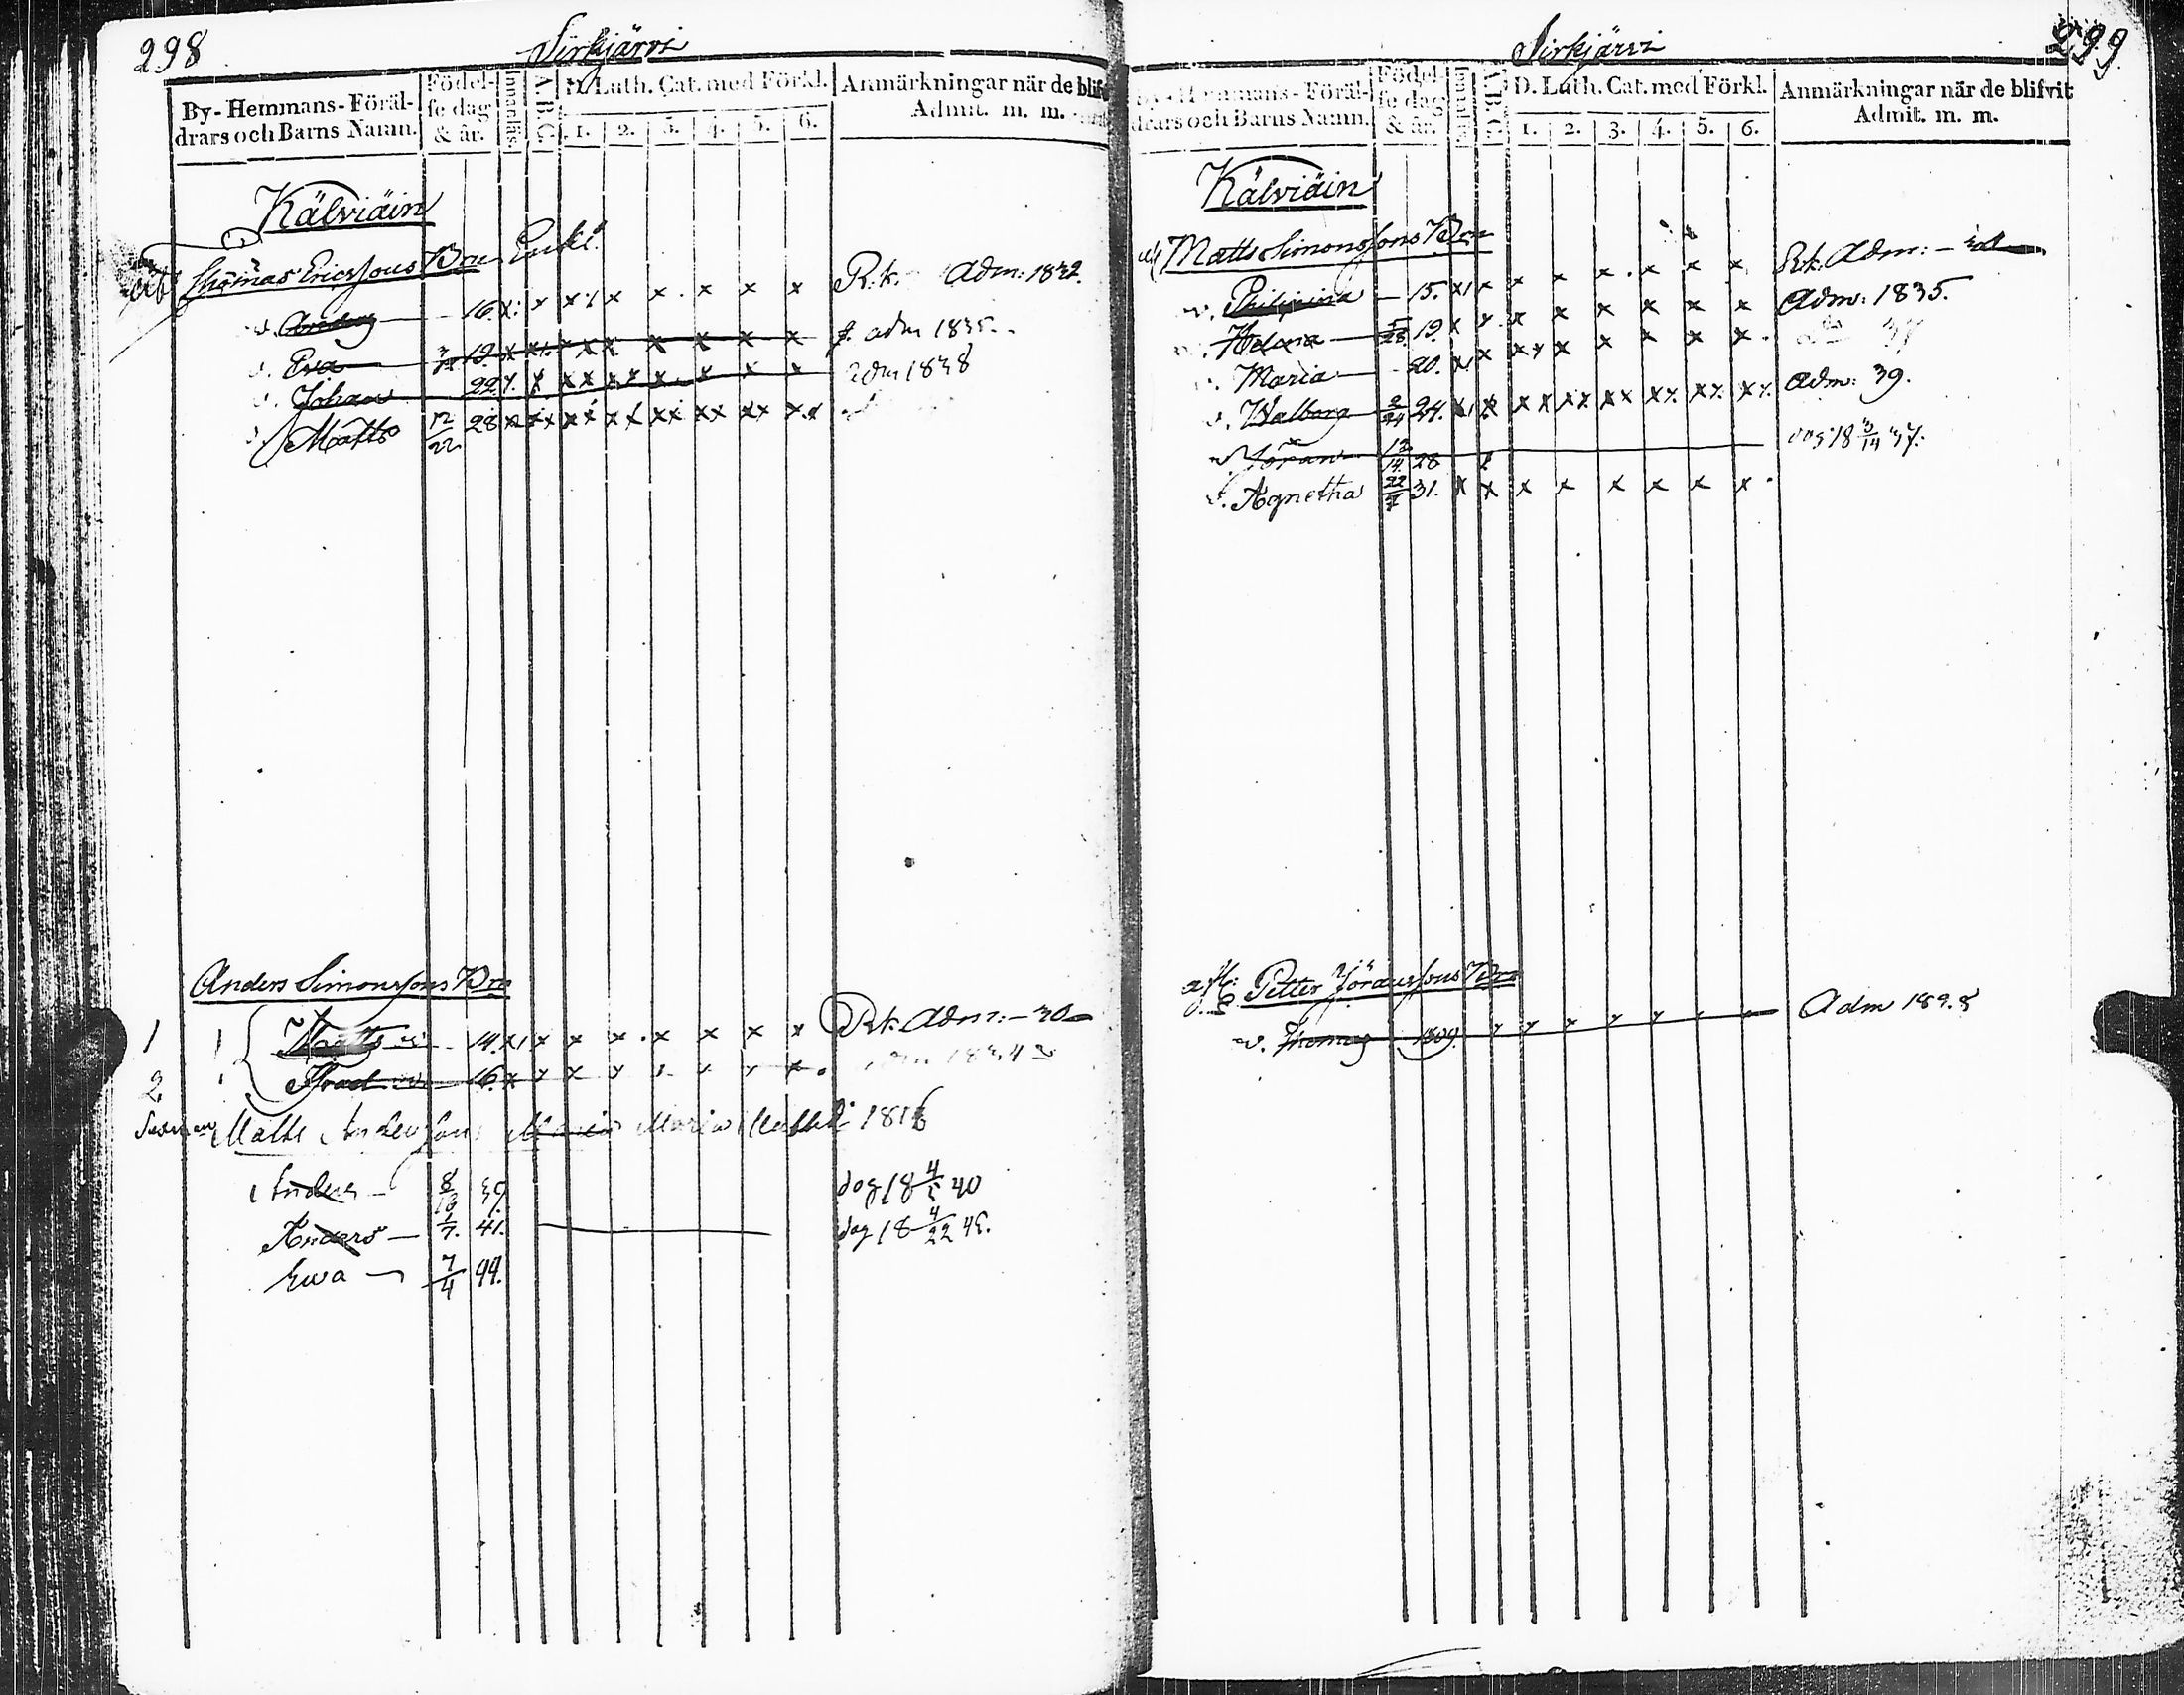 298
Sirkjärvi
By-Hemmans-Föräl-
drars och Barns Namn.
Födel-
se dag
& år.
Innanläs
A.B.C.
D. Luth. Cat. med Förkl.
1. 2. 3. 4. 5. 6.
Anmärkningar när de blifvit
Admit. m. m.
Kälviäin
Thomas Ericssons Brn Enkl.
v. Anders 16. x x x x x x x x R.k. Adm: 1832.
v. Eva 19. x x x x x x x x adm 1835.
v. Johan 22 x x x x x x x adm 1838
v. Matts 12/22 28 x x x x x x x x
Anders Simonssons Brn
1 Matts v. 14. x x x x x x x x R.k. Adm: - 30
2 Israel v. 16. x x x x x x x
Matts Anderssons Maria Maria 1816
Anders 8 39 dog 18 4/5 40
Anders 1/7. 41. dog 18 4/22 45.
Ewa 7/4 44.
299
Sirkjärvi
By-Hemmans-Föräl-
drars och Barns Namn.
Födel-
se dag
& år.
Innanläs
A.B.C.
D. Luth. Cat. med Förkl.
1. 2. 3. 4. 5. 6.
Anmärkningar när de blifvit
Admit. m. m.
Kälviäin
Matts Simonssons Brn
v. Philipina 15. x x x x x x x x R.k. Adm: -
v. Helena 5/28 19. x x x x x x x x Adm: 1835.
v. Maria 20. x x x x x x x x 37
v. Walborg 2/24 24. x x x x x x x x Adm: 39.
v. Jöran 12/14 28 dog 18 3/14 37.
v. Agnetha 22/7 31. x x x x x x x x
Petter Jöranssons Brn
v. Thomas 1809. x x x x x Adm